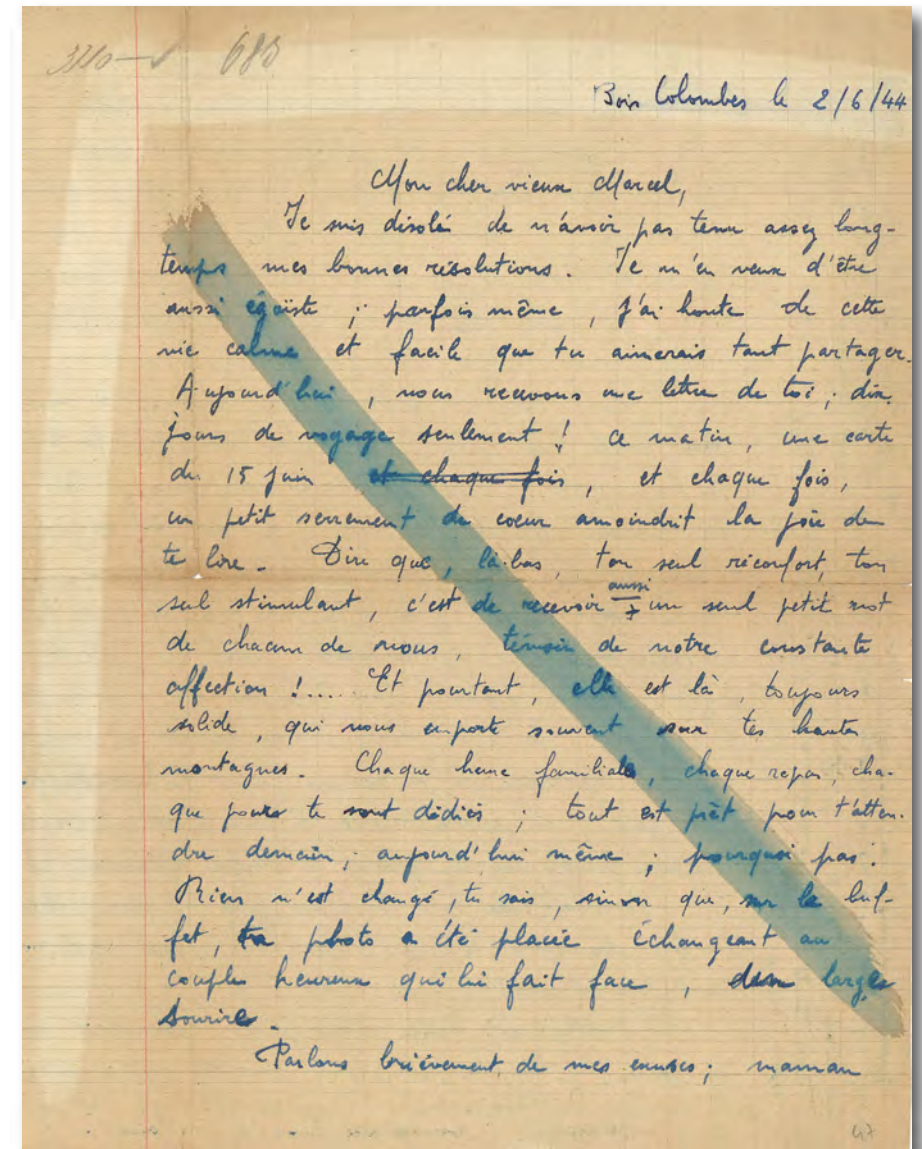 3710 - 683
Bois Colombes le 2/6/44
Mon cher vieux Marcel,
Je suis désolé de n'avoir pas tenu assez long-
temps mes bonnes résolutions. Je m'en veux d'être
aussi égoïste ; parfois même, j'ai honte de cette
vie calme et facile que tu aimerais tant partager.
Aujourd'hui, nous recevons une lettre de toi ; dix
jours de voyage seulement ! ce matin, une carte
du 15 juin et chaque fois, et chaque fois,
un petit serrement de coeur amoindrit la joie de
te lire. Dire que, là-bas, ton seul réconfort, ton
seul stimulant, c'est de recevoir aussi un seul petit mot
de chacun de nous, témoin de notre constante
affection !.... Et pourtant, elle est là, toujours
solide, qui nous emporte souvent sur tes hautes
montagnes. Chaque heure familiale, chaque repas, cha-
que jour te sont dédiés ; tout est prêt pour t'atten-
dre demain ; aujourd'hui même ; pourquoi pas.
Rien n'est changé, tu sais, sinon que, sur le buf-
fet, ta photo a été placée échangeant au
couple heureux qui lui fait face, larges
sourire.
Parlons brièvement de mes excuses ; maman
47